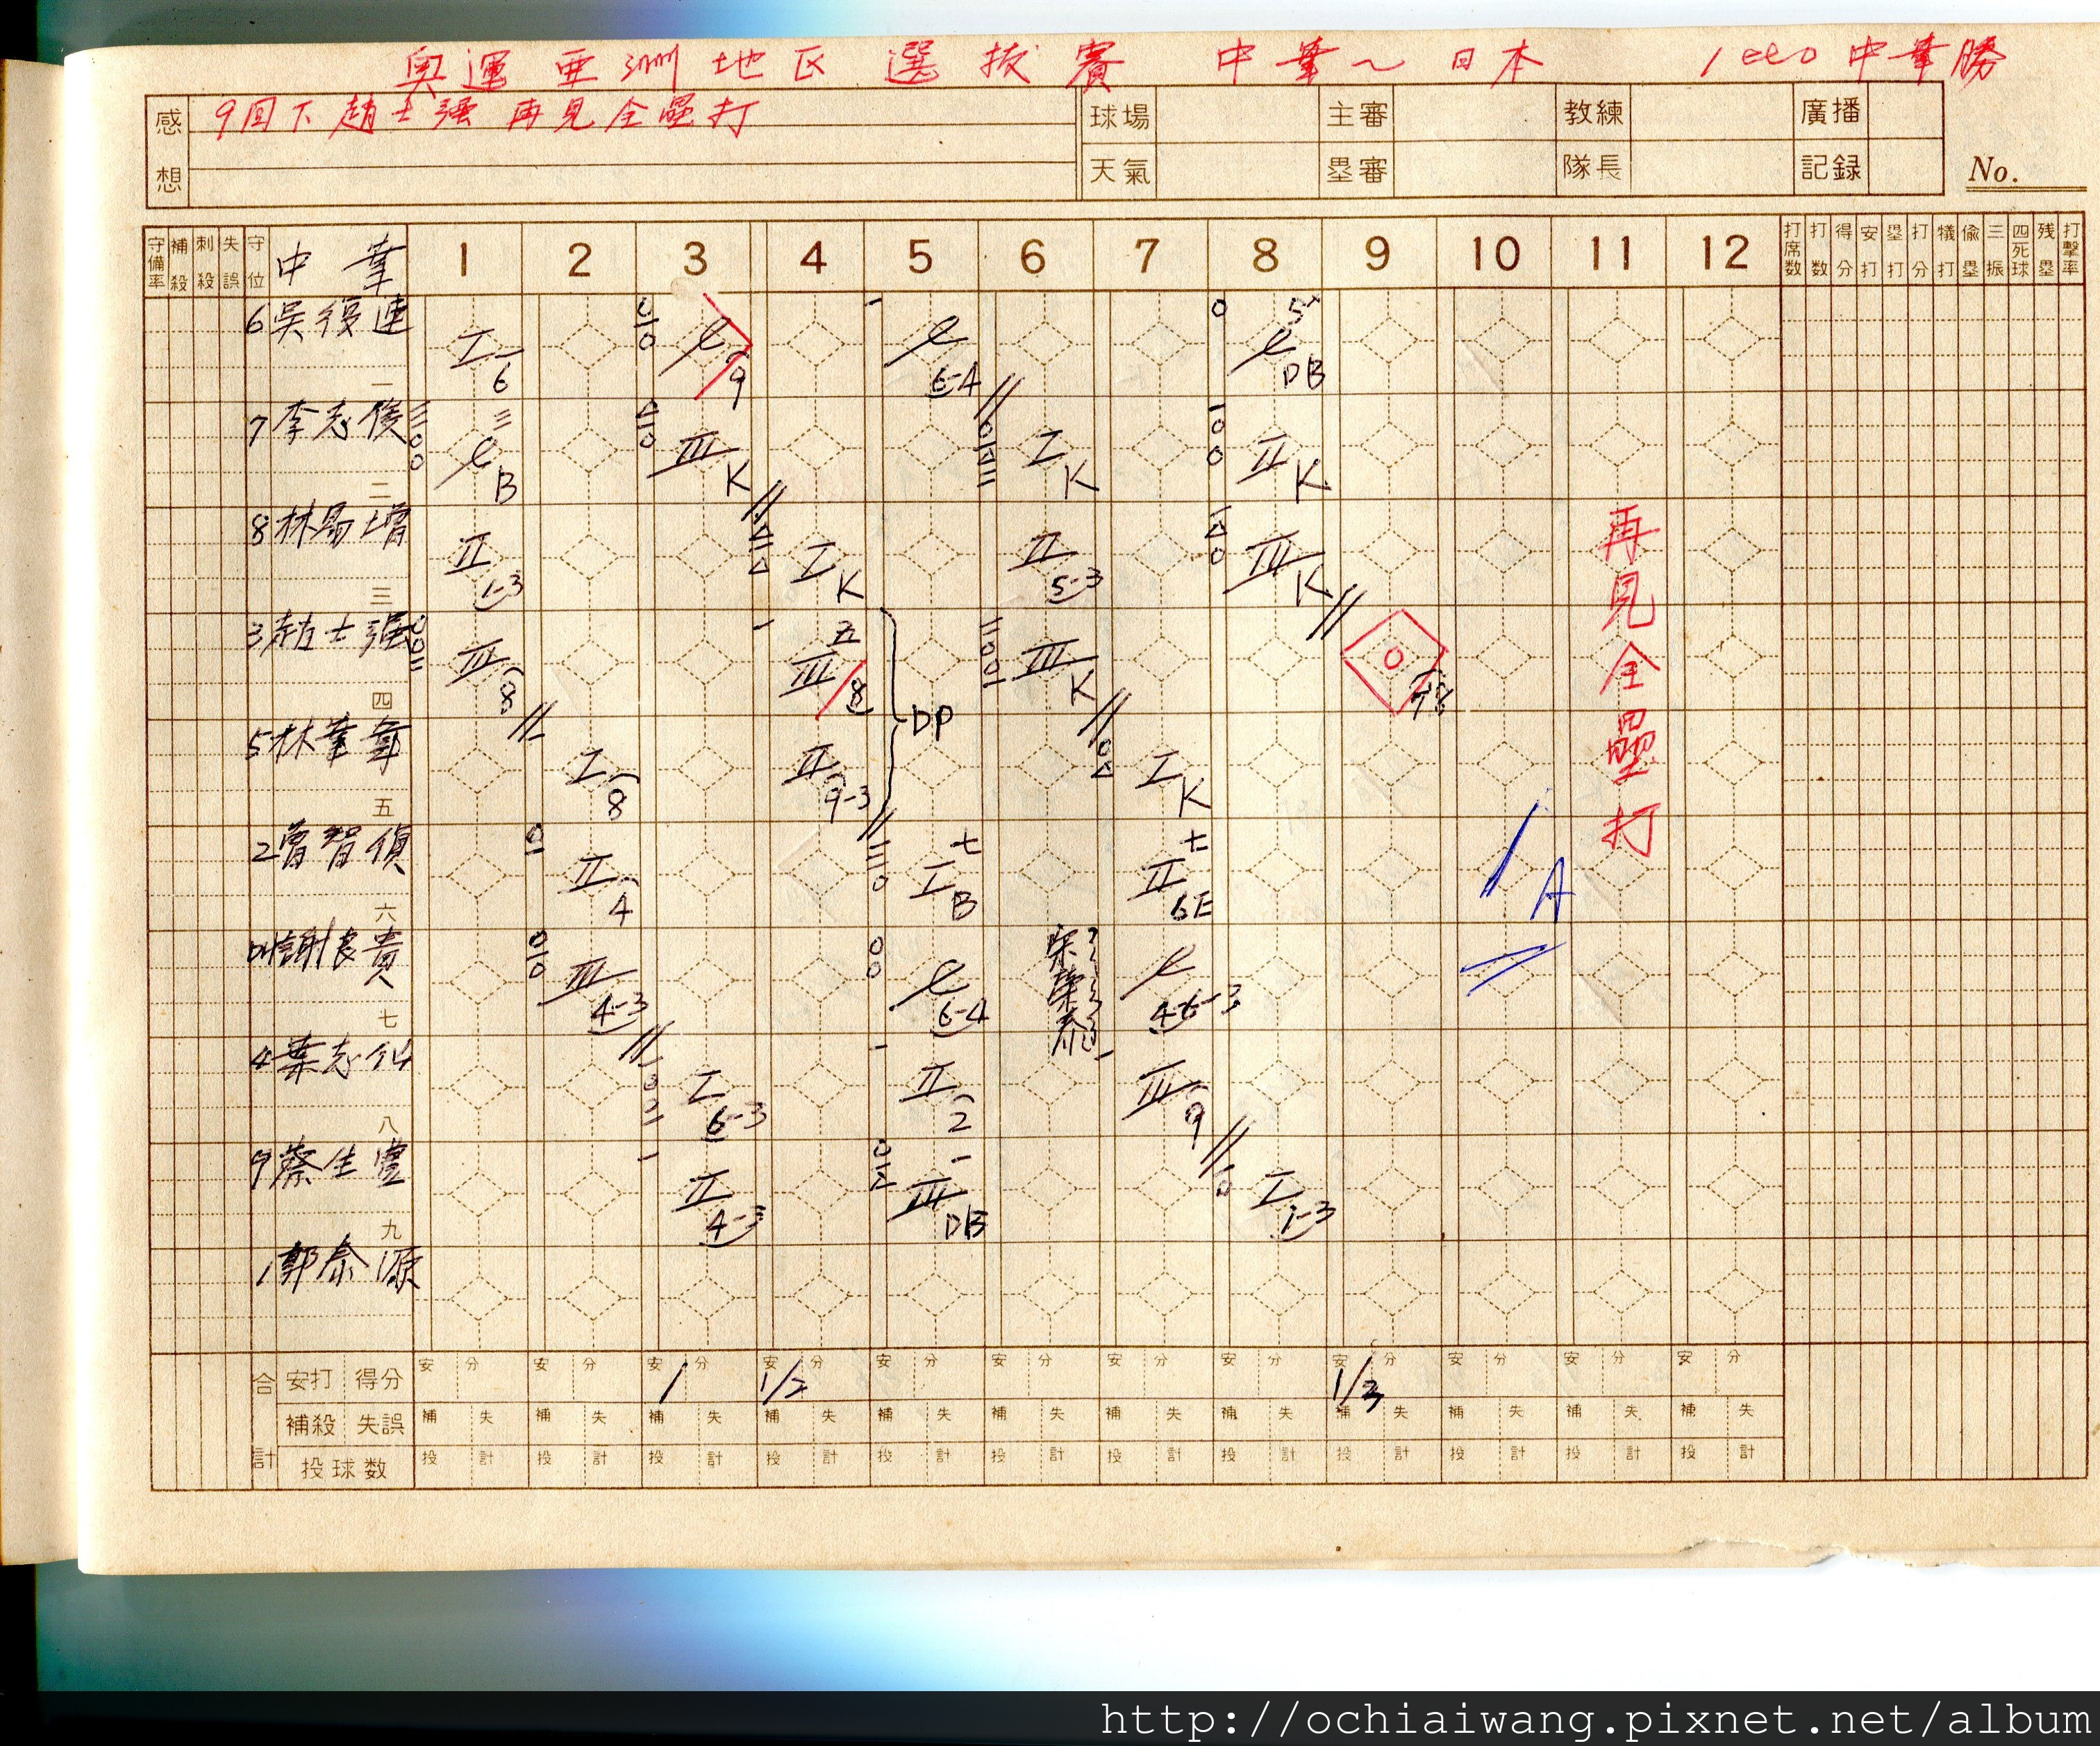 奧運亞洲地区選拔賽 中華~日本 中華勝
感想 9回下趙士強再見全壘打
球場 主審 教練 廣播
天氣 塁審 隊長 記録 No.
守備率 補殺 刺殺 失誤 守位 中華 1 2 3 4 5 6 7 8 9 10 11 12 打席数 打数 得分 安打 塁打 打分 犠打 偸塁 三振 四死球 残塁 打撃率
6 吳復連 I 6 e 9 e 6-4 0 e DB
一
7 李志俊 三 e B III K I K II K
二
8 林易增 II 1-3 I K II 5-3 III K
三
3 趙士強 III 8 五 III 8 III K 0
四
5 林華韋 I 8 II 9-3 DP I K
五
2 曾智偵 II 4 七 I B 七 II 6E
六
DH 謝長貴 III 4-3 e 6-4 宋榮泰 e 4-6-3
七
4 葉志仙 I 6-3 II 2 III 9
八
9 蔡生豐 II 4-3 III DB I 1-3
九
1 郭泰源
再見全壘打
1A
合計 安打 得分 安 分 安 分 安 分 安 分 安 分 安 分 安 分 安 分 安 分 安 分 安 分 安 分
1 1/2 1/3
補殺 失誤 補 失 補 失 補 失 補 失 補 失 補 失 補 失 補 失 補 失 補 失 補 失 補 失
投球数 投 計 投 計 投 計 投 計 投 計 投 計 投 計 投 計 投 計 投 計 投 計 投 計
http://ochiaiwang.pixnet.net/album